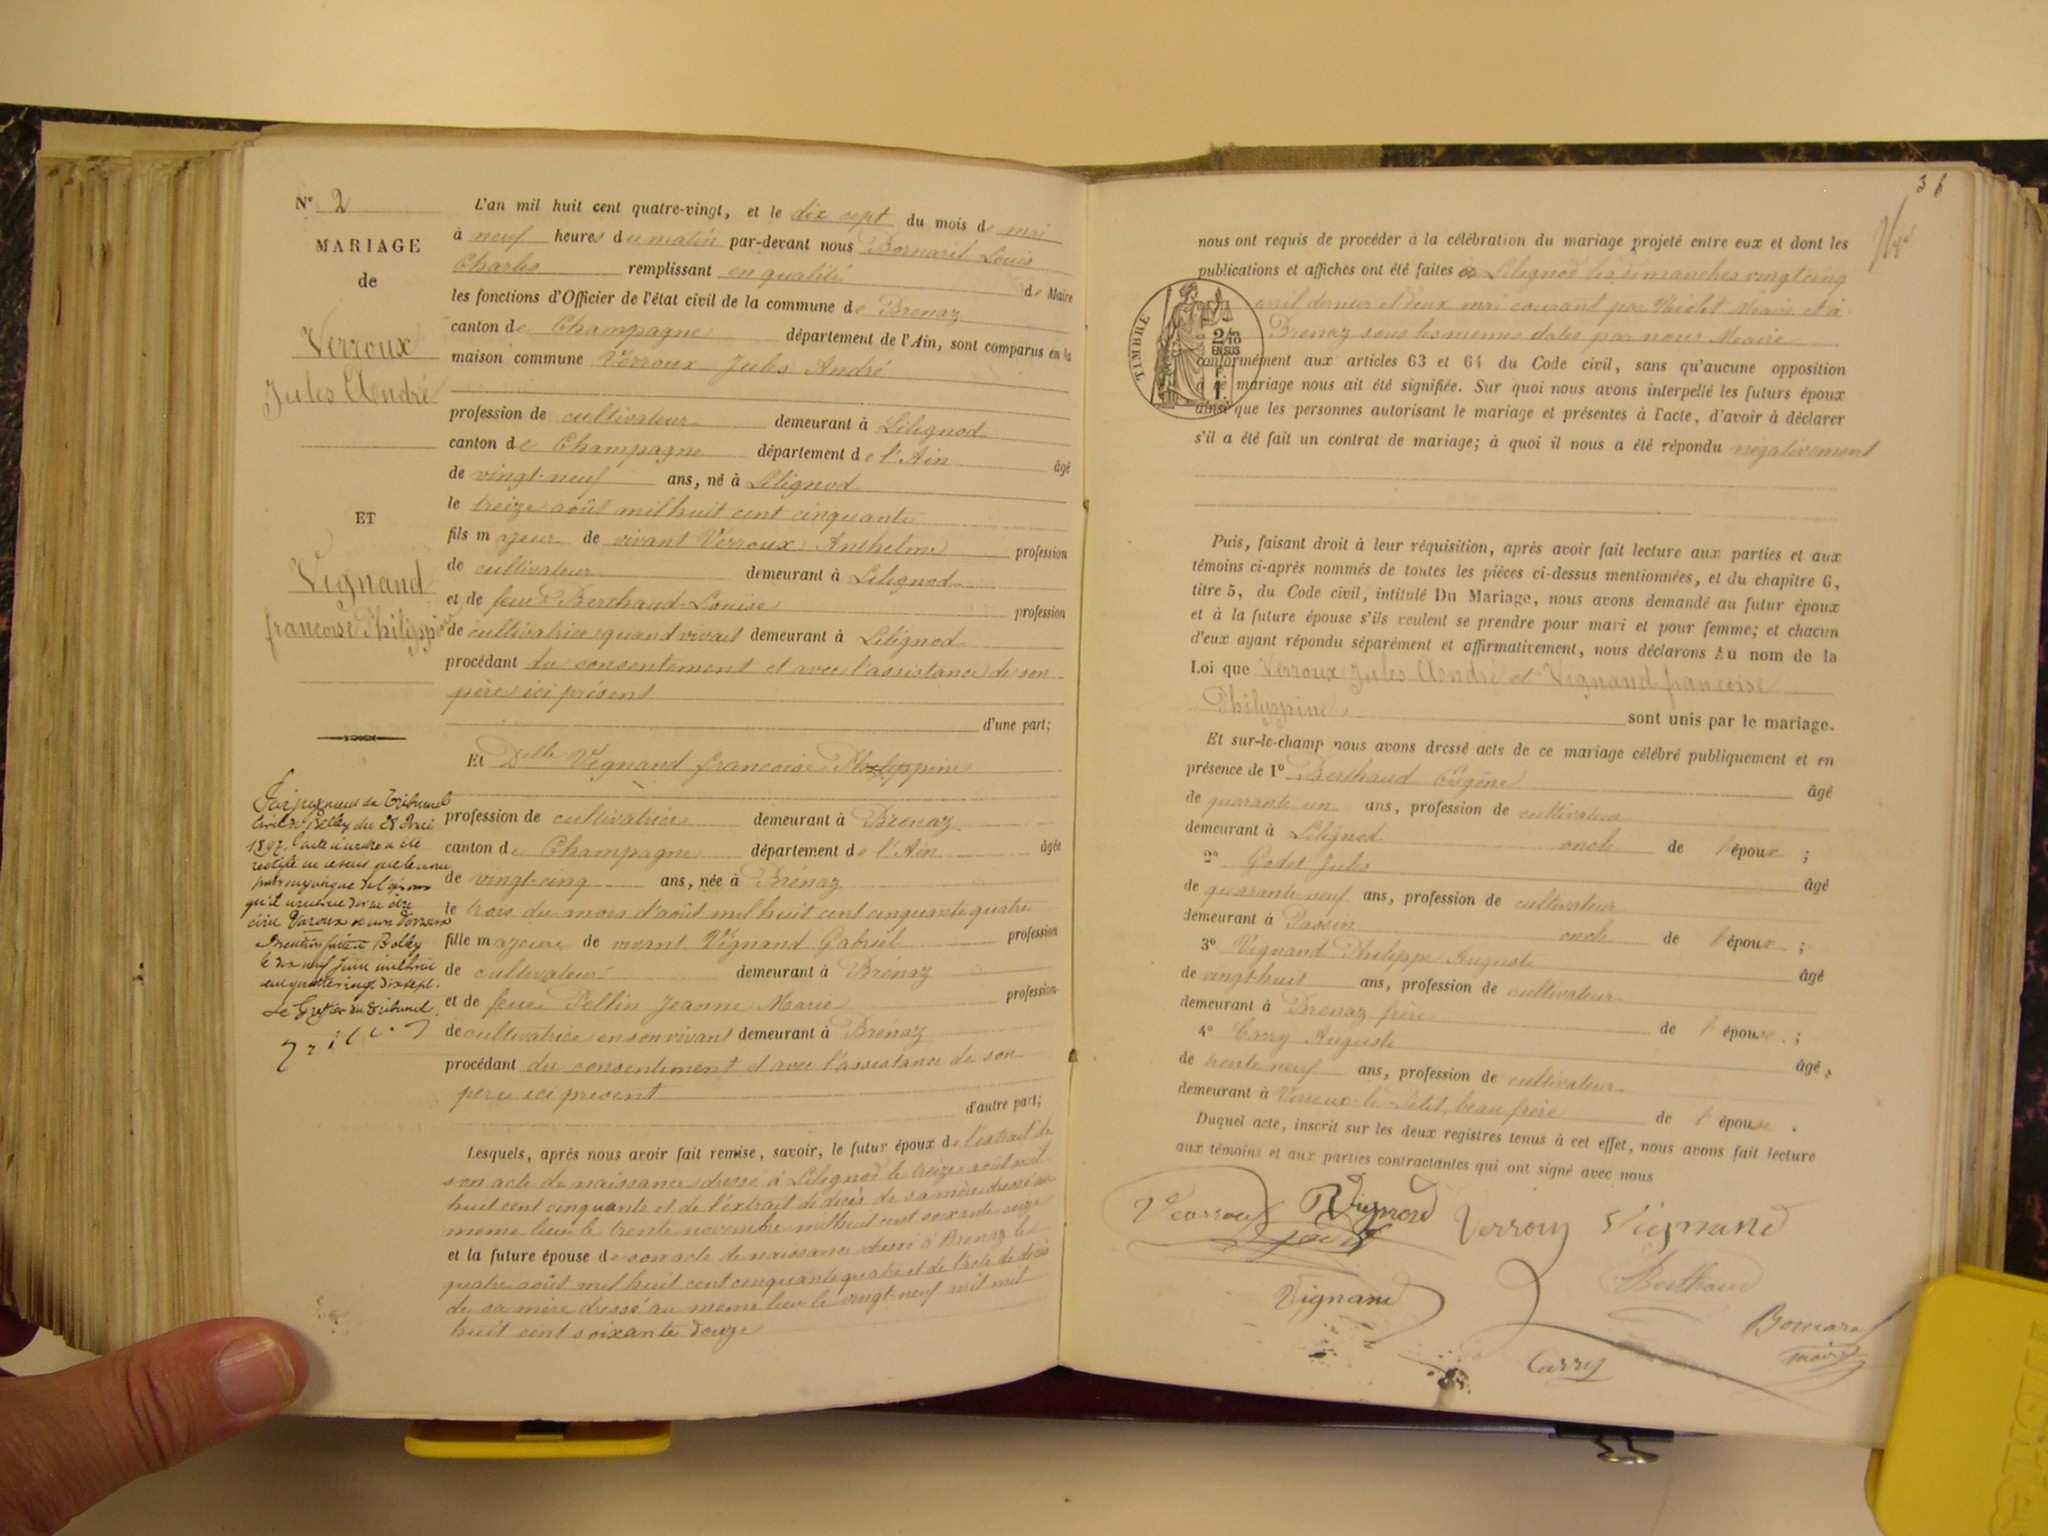 N° 2
MARIAGE
de
Verroux
Jules André
ET
Vignand
francoise Philippine
Par jugement du Tribunal
Civil de Belley du 28 Mai
1897 l'acte ci-contre a été
rectifié en ce sens que le nom
patronymique de l'époux
qu'il concerne doit être
écrit Varoux et non Verroux
Mention faite à Belley
le dix neuf Juin mil huit
cent quatre vingt dix sept.
Le Greffier du Tribunal,
L'an mil huit cent quatre-vingt, et le dix sept du mois de mai
à neuf heures du matin par-devant nous Bornarel Louis
Charles remplissant en qualité de Maire
les fonctions d'Officier de l'état civil de la commune de Brenaz
canton de Champagne département de l'Ain, sont comparus en la
maison commune Verroux Jules André
profession de cultivateur demeurant à Lilignod
canton de Champagne département de l'Ain âgé
de vingt-neuf ans, né à Lilignod
le treize août mil huit cent cinquante
fils majeur de vivant Verroux Anthelme profession
de cultivateur demeurant à Lilignod
et de feue Berthaud Louise profession
de cultivatrice quand vivait demeurant à Lilignod
procédant du consentement et avec l'assistance de son
père ici présent
d'une part;
Et Delle Vignand francoise Philippine
profession de cultivatrice demeurant à Brenaz
canton de Champagne département de l'Ain âgée
de vingt-cinq ans, née à Brénaz
le trois du mois d'août mil huit cent cinquante quatre
fille majeure de vivant Vignand Gabriel profession
de cultivateur demeurant à Brénaz
et de feue Pellin Jeanne Marie profession
de cultivatrice en son vivant demeurant à Brénaz
procédant du consentement et avec l'assistance de son
père ici présent
d'autre part;
Lesquels, après nous avoir fait remise, savoir, le futur époux de l'extrait de
son acte de naissance dressé à Lilignod le treize août mil
huit cent cinquante et de l'extrait de décès de sa mère dressé au
meme lieu le trente novembre mil huit cent soixante seize
et la future épouse de son acte de naissance dressé à Brenaz le
quatre août mil huit cent cinquante quatre et de l'acte de décès
de sa mère dressé au meme lieu le vingt-neuf avril mil
huit cent soixante douze
36
nous ont requis de procéder à la célébration du mariage projeté entre eux et dont les
publications et affiches ont été faites à Lilignod les dimanches vingt cinq
avril dernier et deux mai courant par Maire et à
Brenaz sous les memes dates par nous Maire
TIMBRE
2/10
EN SUS
conformément aux articles 63 et 64 du Code civil, sans qu'aucune opposition
à ce mariage nous ait été signifiée. Sur quoi nous avons interpellé les futurs époux
ainsi que les personnes autorisant le mariage et présentes à l'acte, d'avoir à déclarer
s'il a été fait un contrat de mariage; à quoi il nous a été répondu négativement
Puis, faisant droit à leur réquisition, après avoir fait lecture aux parties et aux
témoins ci-après nommés de toutes les pièces ci-dessus mentionnées, et du chapitre 6,
titre 5, du Code civil, intitulé Du Mariage, nous avons demandé au futur époux
et à la future épouse s'ils veulent se prendre pour mari et pour femme; et chacun
d'eux ayant répondu séparément et affirmativement, nous déclarons au nom de la
Loi que Verroux Jules André et Vignand francoise
Philippine sont unis par le mariage.
Et sur-le-champ nous avons dressé acte de ce mariage célébré publiquement et en
présence de 1° Berthaud Eugène âgé
de quarante un ans, profession de cultivateur
demeurant à Lilignod oncle de l'époux ;
2° Godet Jules âgé
de quarante neuf ans, profession de cultivateur
demeurant à Passin oncle de l'époux ;
3° Vignand Philippe Auguste âgé
de vingt-huit ans, profession de cultivateur
demeurant à Brenaz frère de l'épouse ;
4° Carry Auguste âgé
de trente neuf ans, profession de cultivateur
demeurant à Virieux-le-Petit, beau frère de l'épouse .
Duquel acte, inscrit sur les deux registres tenus à cet effet, nous avons fait lecture
aux témoins et aux parties contractantes qui ont signé avec nous
Vignand Verroux Vignand
Vignand Berthaud
Carry Bornarel
maire